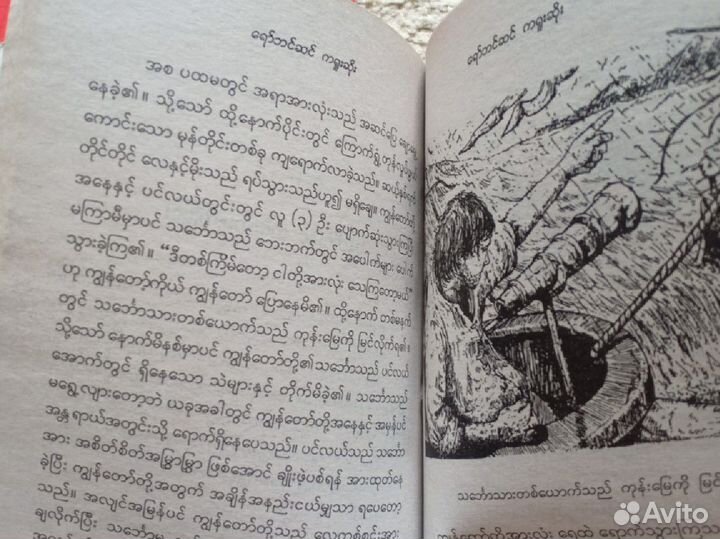 ရော်ဘင်ဆင် ကရူးဆိုး
အစ ပထမတွင် အရာအားလုံးသည် အဆင်ပြေ
နေခဲ့၏။ သို့သော် ထို့နောက်ပိုင်းတွင် ကြောက်ရွံ့တုန်လှုပ်
ကောင်းသော မုန်တိုင်းတစ်ခု ကျရောက်လာခဲ့သည်။ ဆယ့်နှစ်ရက်
တိုင်တိုင် လေနှင့်မိုးသည် ရပ်သွားသည်ဟူ၍ မရှိချေ။ ကျွန်တော်တို့
အနေနှင့် ပင်လယ်တွင်းတွင် လူ (၃) ဦး ပျောက်ဆုံးသွားကြပြီး
မကြာမီမှာပင် သင်္ဘောသည် ဘေးဘက်တွင် အပေါက်များ ပေါက်
သွားခဲ့ကြ၏။ “ဒီတစ်ကြိမ်တော့ ငါတို့အားလုံး သေကြတော့မယ်”
ဟု ကျွန်တော့်ကိုယ် ကျွန်တော် ပြောနေမိ၏။ ထို့နောက် တစ်မနက်
တွင် သင်္ဘောသားတစ်ယောက်သည် ကုန်းမြေကို မြင်လိုက်ရ၏။
သို့သော် နောက်မိနစ်မှာပင် ကျွန်တော်တို့၏သင်္ဘောသည် ပင်လယ်
အောက်တွင် ရှိနေသော သဲများနှင့် တိုက်မိခဲ့၏။ သင်္ဘောသည်
မရွေ့လျားတော့ဘဲ ယခုအခါတွင် ကျွန်တော်တို့အနေနှင့် အမှန်ပင်
အန္တရာယ်အတွင်းသို့ ရောက်ရှိနေပေသည်။ ပင်လယ်သည် သင်္ဘော
အား အစိတ်စိတ်အမြွှာမြွှာ ဖြစ်အောင် ချိုးဖဲ့ပစ်ရန် အားထုတ်နေ
ခဲ့ပြီး ကျွန်တော်တို့အတွက် အချိန်အနည်းငယ်မျှသာ ရပေတော့
သည်။ အလျင်အမြန်ပင် ကျွန်တော်တို့သည် လှေတစ်စင်းအား
ချလိုက်ပြီး
ရော်ဘင်ဆင် ကရူးဆိုး
သင်္ဘောသားတစ်ယောက်သည် ကုန်းမြေကို မြင်
ကျွန်တော်တို့အားလုံး ရေထဲ ရောက်သွားကြသည်
Avito